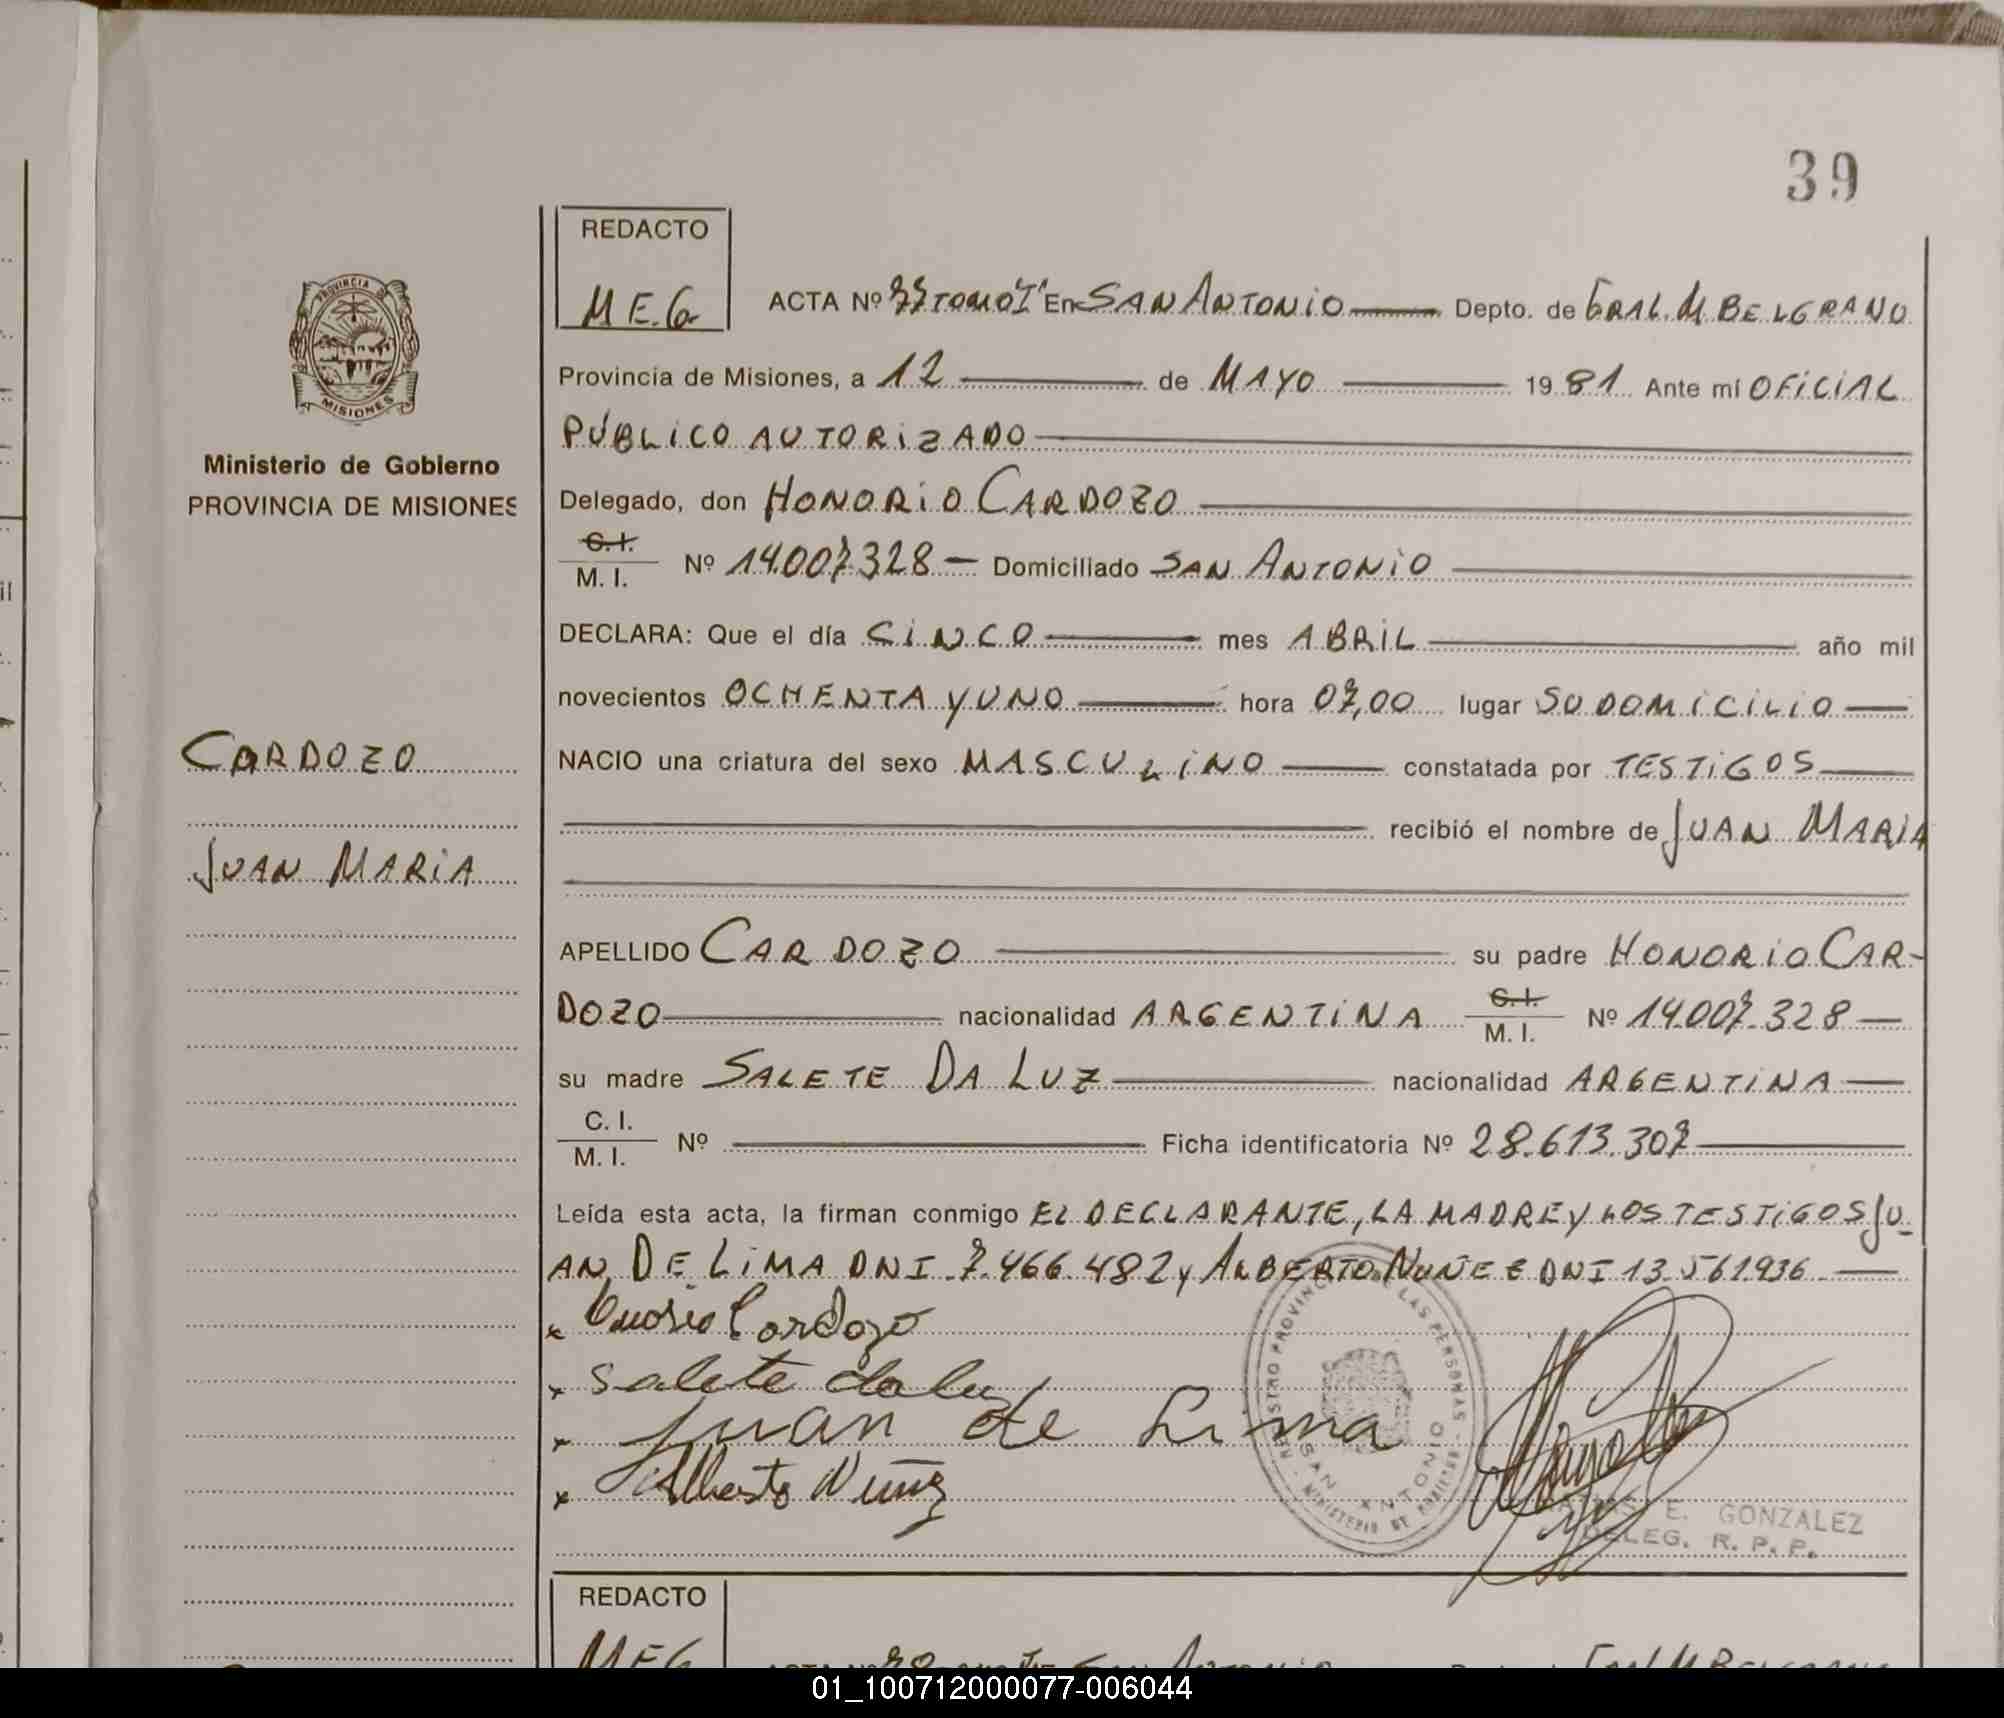 39
REDACTO
M E. G.
ACTA Nº 77 TOMO "I" En SAN ANTONIO Depto. de GRAL. M BELGRANO
Provincia de Misiones, a 12 de MAYO 19 81 Ante mí OFICIAL
PÚBLICO AUTORIZADO
Delegado, don HONORIO CARDOZO
C. I.
M. I. Nº 14.007.328 - Domiciliado SAN ANTONIO
DECLARA: Que el día CINCO mes ABRIL año mil
novecientos OCHENTA Y UNO hora 07,00 lugar SU DOMICILIO
NACIO una criatura del sexo MASCULINO constatada por TESTIGOS
recibió el nombre de JUAN MARIA
APELLIDO CARDOZO su padre HONORIO CAR-
DOZO nacionalidad ARGENTINA C. I. M. I. Nº 14.007.328
su madre SALETE DA LUZ nacionalidad ARGENTINA
C. I.
M. I. Nº Ficha identificatoria Nº 28.613.307
Leída esta acta, la firman conmigo EL DECLARANTE, LA MADRE Y LOS TESTIGOS JU-
AN DE LIMA DNI 7.466.482 y ALBERTO NUÑEZ DNI 13.561.936
x Onorio Cardozo
x Salete da luz
x Juan de Lima
x Alberto Nuñez
REGISTRO PROVINCIAL DE LAS PERSONAS
SAN ANTONIO
E. GONZALEZ
DELEG. R. P. P.
PROVINCIA DE
MISIONES
Ministerio de Gobierno
PROVINCIA DE MISIONES
CARDOZO
JUAN MARIA
REDACTO
MEG
01_100712000077-006044